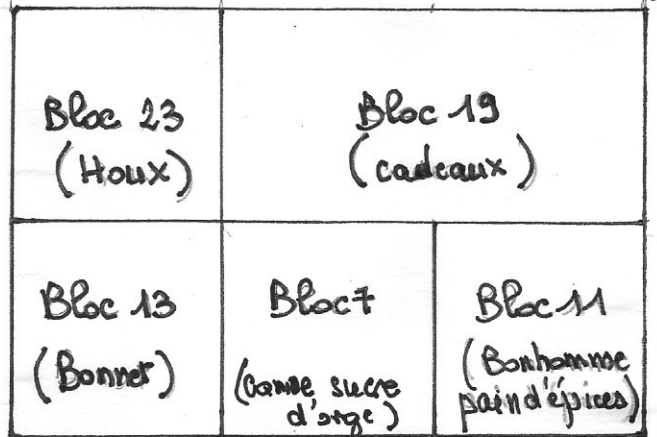 Bloc 23
(Houx)
Bloc 19
(cadeaux)
Bloc 13
(Bonnet)
Bloc 7
(canne sucre
d'orge)
Bloc 11
(Bonhomme
pain d'épices)